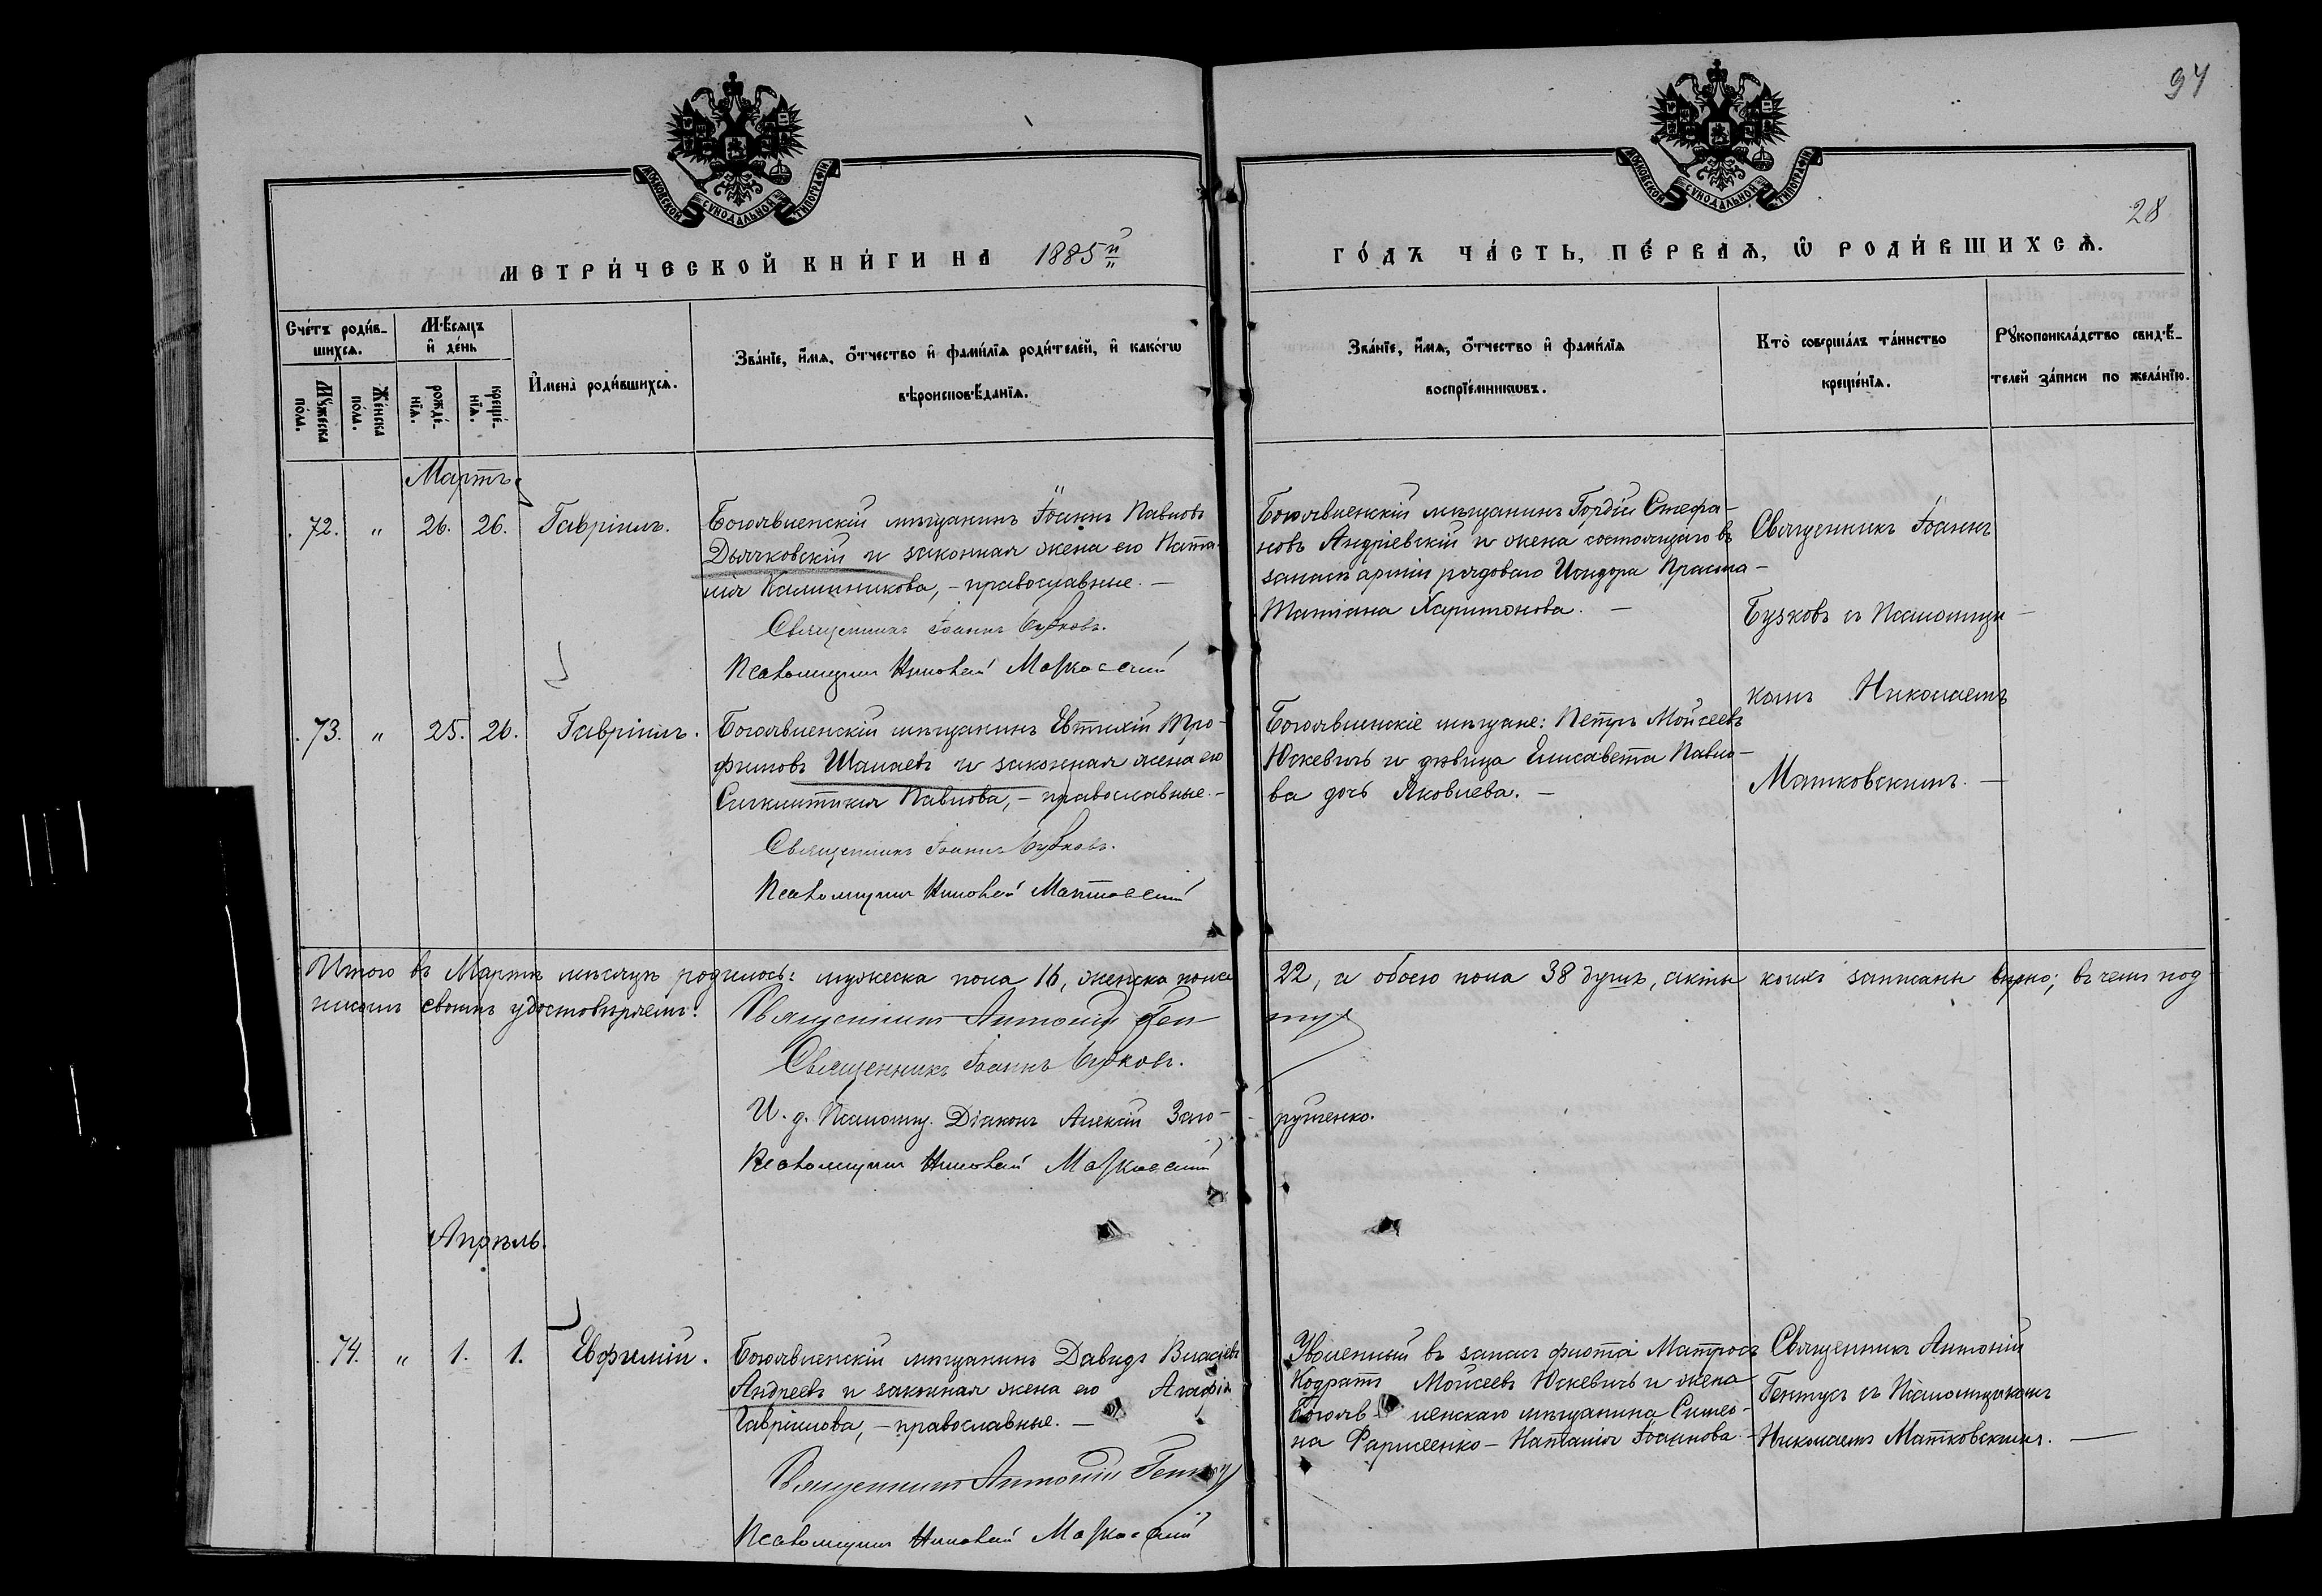 94
МОСКОВСКОЙ СУНОДАЛЬНОЙ ТИПОГРАФІИ
МОСКОВСКОЙ СУНОДАЛЬНОЙ ТИПОГРАФІИ
28
МЕТРИ́ЧЕСКОЙ КНИ́ГИ НА 1885й
ГО́ДЪ ЧА́СТЬ, ПЕ́РВАѦ, Ѿ РОДИ́ВШИХСѦ.
Сче́тъ роди́в-
шихсѧ.
Мѣ́сѧцъ
и҆ де́нь
Мꙋ́жеска
по́ла.
Же́нска
по́ла.
рожде́-
нїѧ.
креще́-
нїѧ.
И҆мена̀ роди́вшихсѧ.
Зва́нїе, и҆́мѧ, ѻ҆́тчество и҆ фами́лїѧ роди́телей, и҆ како́гѡ
вѣроисповѣ́данїѧ.
Зва́нїе, и҆́мѧ, ѻ҆́тчество и҆ фами́лїѧ
воспрїе́мникѡвъ.
Кто̀ соверша́лъ та́инство
креще́нїѧ.
Рꙋкоприкла́дство свидѣ́-
телей за́писи по жела́нїю.
Мартъ
72. " 26. 26. Гавріилъ.
Богоявленскій мѣщанинъ Іоаннъ Павловъ
Дьячковскій и законная жена его Ната-
лія Калинникова, - православные. -
Священникъ Іоаннъ Бузковъ.
Псаломщикъ Николай Матковскій
Богоявленскій мѣщанинъ Гордій Стефа-
новъ Андріевскій и жена состоящаго въ
запасѣ арміи рядоваго Исидора
Татіана Харитонова. -
Священникъ Іоаннъ
Бузковъ съ Псаломщи-
комъ Николаемъ
Матковскимъ. -
73. " 25. 26. Гавріилъ.
Богоявленскій мѣщанинъ Евтихій Тро-
фимовъ Шалаевъ и законная жена его
Сигклитикія Павлова, - православные. -
Священникъ Іоаннъ Бузковъ.
Псаломщикъ Николай Матковскій
Богоявленскіе мѣщане: Петръ Мойсеевъ
Юскевичъ и дѣвица Елисавета Павло-
ва дочь Яковлева. -
Итого въ Мартѣ мѣсяцѣ родилось: мужеска пола 16, женска пола 22, а обоего пола 38 душъ, акты коихъ записаны вѣрно; въ чемъ под
писомъ своимъ удостовѣряемъ:
Священникъ Антоній Гентуз
Священникъ Іоаннъ Бузковъ.
И. д. Псаломщ. Діаконъ Алексій Заго-руйченко.
Псаломщикъ Николай Матковскій
Апрѣль.
74. " 1. 1. Евфимій.
Богоявленскій мѣщанинъ Давидъ Власіевъ
Андреевъ и законная жена его Агафія
Гавріилова, - православные. -
Священникъ Антоній Гентуз
Псаломщикъ Николай Матковскій
Уволенный въ запасъ флота Матросъ
Кодратъ Мойсеевъ Юскевичъ и жена
Богоявленскаго мѣщанина Симео-
на Фарисеенко - Наталія Іоаннова. -
Священникъ Антоній
Гентузъ съ Псаломщикомъ
Николаемъ Матковскимъ. -